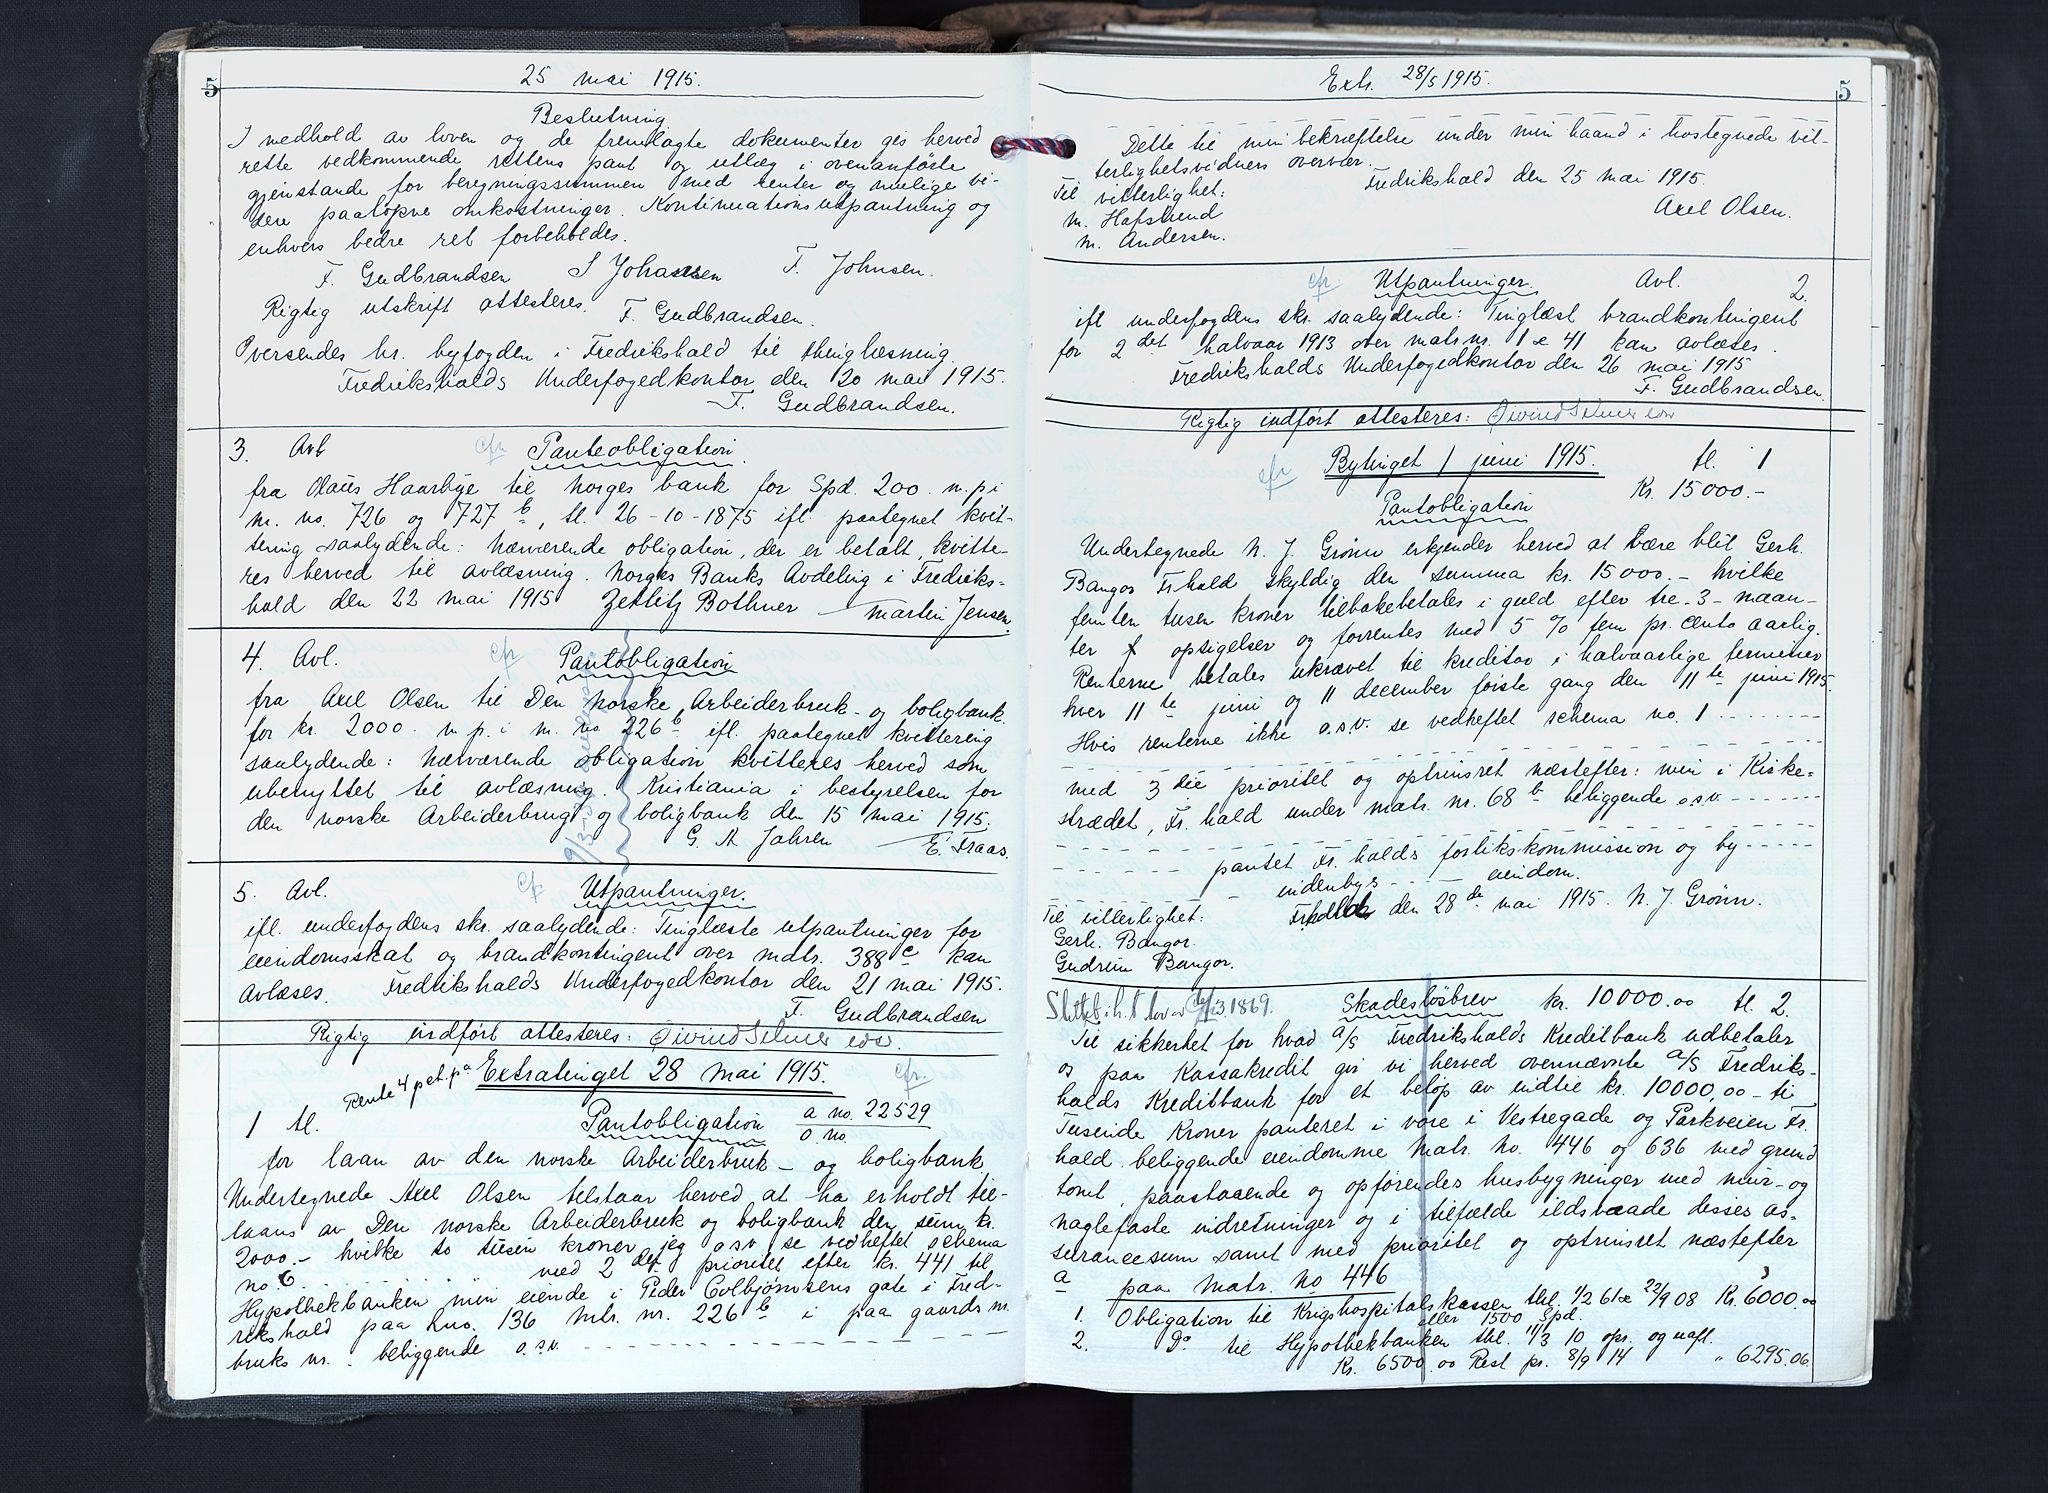 5
25 mai 1915.
Beslutning
I medhold av loven og de fremlagte dokumenter gis herved
rette vedkommende rettens pant og utlæg i ovenanførte
gjenstande for beregningssummen med renter og mulige vi-
dere paaløpne omkostninger. Kontinuationsutpantning og
enhvers bedre ret forbeholdes.
F. Gudbrandsen S Johansen T. Johnsen.
Rigtig utskrift attesteres. F. Gudbrandsen.
Oversendes hr. byfogden i Fredrikshald til thinglæsning.
Fredrikshalds Underfogedkontor den 20 mai 1915.
F. Gudbrandsen.
3. Avl cfr Panteobligation.
fra Olaus Haarbye til Norges bank for Spd. 200. m. p i
m. no. 726 og 727 b, tl. 26-10-1875 ifl. paategnet kvit-
tering saalydende: Nærværende obligation, der er betalt, kvitte-
res herved til avlæsning. Norges Banks Avdeling i Fredriks-
hald den 22 mai 1915 Zetlitz Bothner Martin Jensen.
4. Avl. cfr Pantobligation
fra Axel Olsen til Den Norske Arbeiderbruk- og boligbank
for kr. 2000. m. p. i m. no. 226 b ifl. paategnet kvittering
saalydende: Nærværende obligation kvitteres herved som
ubenyttet til avlæsning. Kristiania i bestyrelsen for
den norske Arbeiderbrug og boligbank den 15 mai 1915.
G. A Jahren E. Traas.
5. Avl. cfr Utpantninger.
ifl. underfogdens skr. saalydende: Tinglæste utpantninger for
eiendomsskat og brandkontingent over matr. 388 c kan
avlæses. Fredrikshalds Underfogedkontor den 21 mai 1915.
F. Gudbrandsen
Rigtig indført attesteres: Øivind Selmer
Rente 4 pct. pa Extratinget 28 mai 1915. cfr.
1 tl. Pantobligation a no. 22529
o. no.
for laan av den norske Arbeiderbruk- og boligbank
Undertegnede Axel Olsen tilstaar herved at ha erholdt til-
laans av Den norske Arbeiderbruk og boligbank den sum kr.
2000.- hvilke to tusen kroner jeg o.s.v. se vedheftet schema
no. 6 med 2 det prioritet efter kr. 441 til
Hypothekbanken min eiende i Peder Colbjørnsens gate i Fred-
rikshald paa Lno. 136 Mtr. nr. 226 b i paa gaards nr.
bruks nr. - beliggende o.s.v.
Extr. 28/5 1915.
5
Dette til min bekræftelse under min haand i hostegnede vit-
terlighetsvidners overvær.
Fredrikshald den 25 mai 1915.
Til vitterlighet: Axel Olsen.
M. Hafsund
M. Andersen.
cfr. Utpantninger. Avl. 2.
ifl underfogdens skr. saalydende: Tinglæst brandkontingent
for 2 det halvaar 1913 over matr. nr. 1 e 41 kan avlæses.
Fredrikshalds Underfogedkontor den 26 mai 1915
F. Gudbrandsen.
Rigtig indført attesteres: Øivind Selmer
cfr Bytinget 1 juni 1915. tl. 1
Pantobligation Kr. 15000.-
Undertegnede N. J. Grønn erkjender herved at være blit Gerh.
Bangor Fr.hald skyldig den summa kr. 15000.- hvilke
femten tusen kroner tilbakebetales i guld efter tre - 3 - maan-
ter opsigelser og forrentes med 5 % fem pr. cento aarlig.
Renterne betales ukrævet til kreditor i halvaarlige terminer
hver 11 te juni og 11 december første gang den 11 te juni 1915.
Hvis renterne ikke o.s.v. se vedheftet schema no. 1
med 3 die prioritet og optrinsret næstefter: min i Kirke-
strædet, Fr. hald under matr. nr. 68 b beliggende o.s.v.
pantet Fr. halds forlikskommission og by
eiendom.
Til vitterlighet: den 28 de mai 1915. N. J. Grønn.
Gerh. Bangor.
Gudrun Bangor.
1869. Skadesløsbrev kr. 10000.00 tl. 2.
Til sikkerhet for hvad A/S Fredrikshalds Kreditbank utbetaler
os paa Kassakredit gir vi herved ovennævnte A/S Fredriks-
halds Kreditbank for et beløp av indtil kr. 10000,00 - ti
Tusende Kroner panteret i vore i Vestregade og Parkveien Fr.
hald beliggende eiendomme Matr. No. 446 og 636 med grund
tomt, paastaaende og opførendes husbygninger med mur- og
naglefaste indretninger og i tilfælde ildsvaade disses as-
surancesum samt med prioritet og optrinsret næstefter
a paa Matr. No 446
1. Obligation til Krigshospitalskassen tbl. 1/2 61 22/9 08 Kr. 6000.00
eller 1500 Spd.
2. Do til Hypothekbanken tbl. 11/3 10 opr. og uafl.
Kr. 6500.00 Rest pr. 8/9 14 " 6295.06